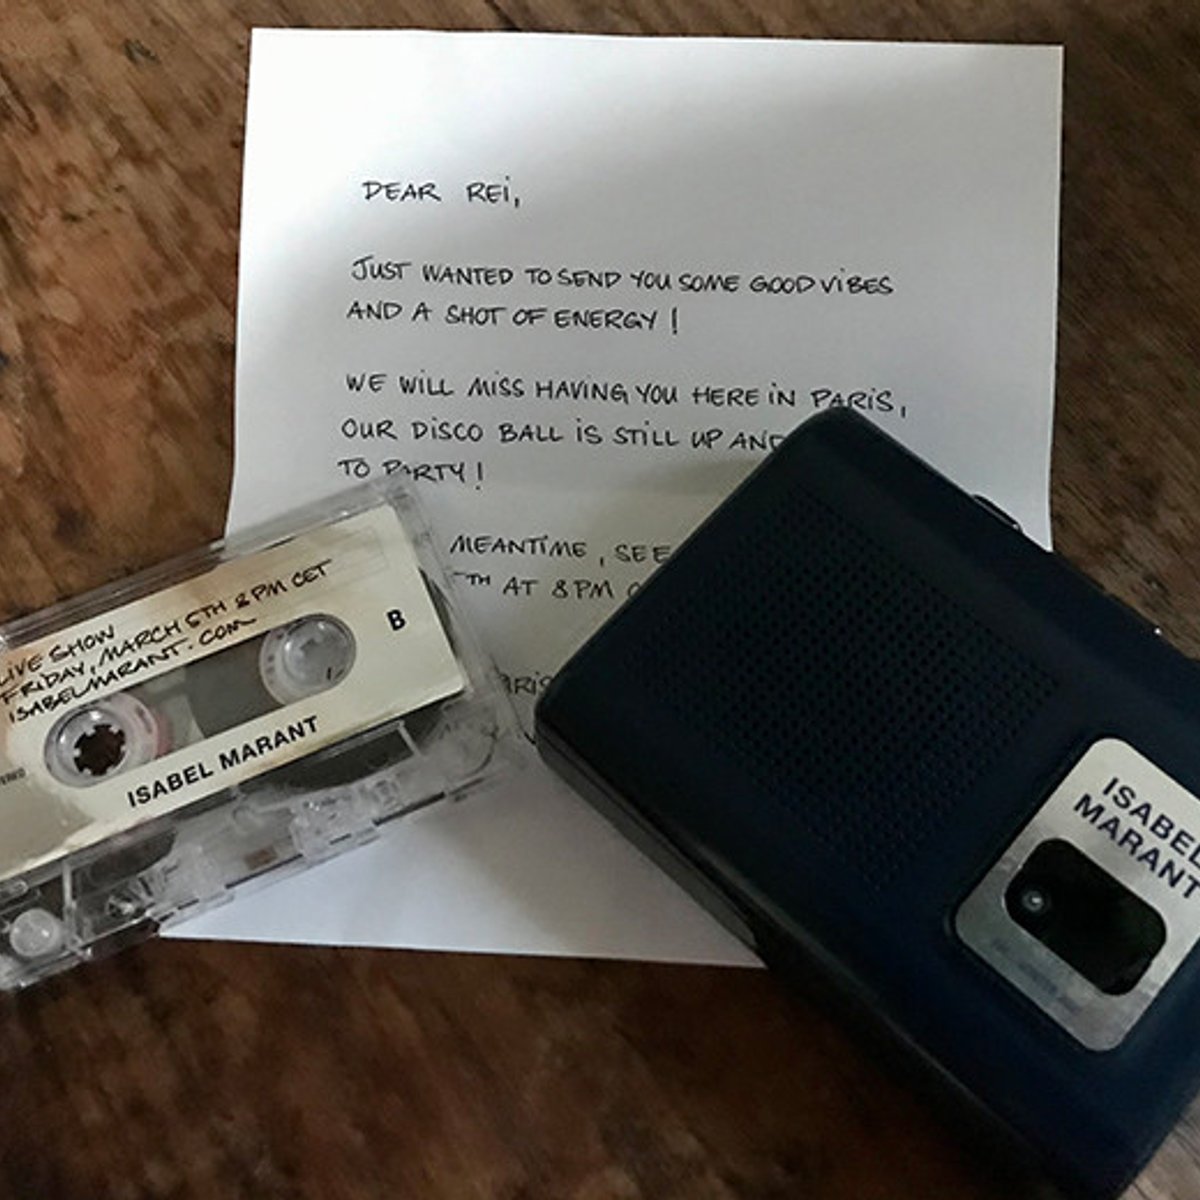 DEAR REI,
JUST WANTED TO SEND YOU SOME GOOD VIBES
AND A SHOT OF ENERGY !
WE WILL MISS HAVING YOU HERE IN PARIS,
OUR DISCO BALL IS STILL UP AND
TO PARTY !
MEANTIME, SEE
TH AT 8PM
LIVE SHOW
FRIDAY, MARCH 5TH 8PM CET
ISABELMARANT.COM
B
ISABEL MARANT
ISABEL
MARANT